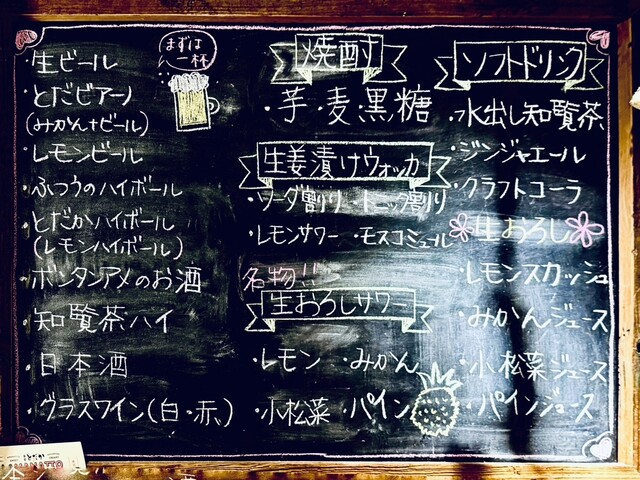 まずは
一杯
・生ビール
・とだビアーノ
(みかん+ビール)
・レモンビール
・ふつうのハイボール
・とだかハイボール
(レモンハイボール)
・ボンタンアメのお酒
・知覧茶ハイ
・日本酒
・グラスワイン(白・赤)
焼酎
・芋・麦・黒糖
生姜漬けウォッカ
・ソーダ割り・トニック割り
・レモンサワー・モスコミュール
名物!!
生おろしサワー
・レモン・みかん
・小松菜・パイン
ソフトドリンク
・水出し知覧茶
・ジンジャエール
・クラフトコーラ
生おろし
・レモンスカッシュ
・みかんジュース
・小松菜ジュース
・パインジュース